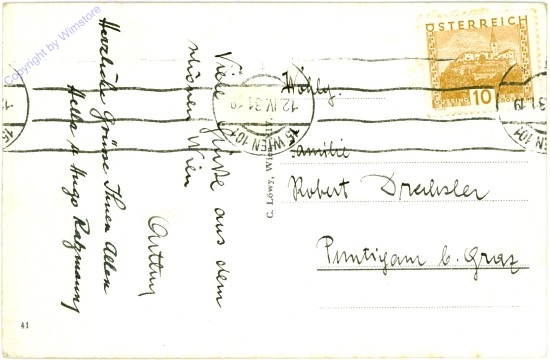 Copyright by Wimstore
Herzliche Grüsse Ihnen Allen
Hella & Hugo
Viele Grüße aus dem
schönen Wien
ÖSTERREICH
10
15 WIEN 101
12.IV.31.19
Familie
Robert Drechsler
Puntigam b. Graz
C. Ledwy, Wien
41